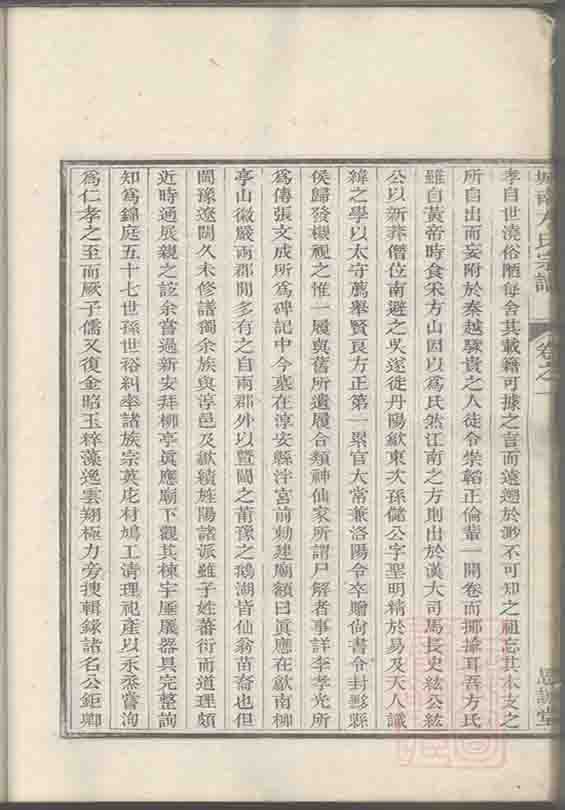 城南方氏宗譜 卷之一 思訓堂
孝自世澆俗陋每舍其載籍可據之言而遠遡於渺不可知之祖忘其本支之
所自出而妄附於秦越驟貴之人徒令崇韜正倫輩一開卷而揶揄耳吾方氏
雖自黃帝時食宋方山因以爲氏然江南之方則出於漢大司馬長史紘公紘
公以新莽僭位南避之吳遂徙丹陽歙東次孫儲公字聖明精於易及天人讖
緯之學以太守薦舉賢良方正第一累官大常兼洛陽令卒贈尙書令封黟縣
侯歸發櫬視之惟一履與舊所遺履合類神仙家所謂尸解者事詳李孝光所
爲傳張文成所爲碑記中今墓在淳安縣泮宮前勅建廟額曰眞應在歙南柳
亭山徽嚴兩郡閒多有之自兩郡外以暨閩之莆豫之鵝湖皆仙翁苗裔也但
閩豫遼闊久未修譜獨余族與淳邑及歙績旌陽諸派雖子姓蕃衍而道理頗
近時通展親之誼余嘗過新安拜柳亭眞應廟下觀其棟宇匾儀器具完整詢
知爲錦庭五十七世孫世裕糾率諸族宗英庀材鳩工清理祀產以永烝嘗洵
爲仁孝之至而厥子儒又復金昭玉粹藻逸雲翔極力旁搜輯錄諸名公鉅卿